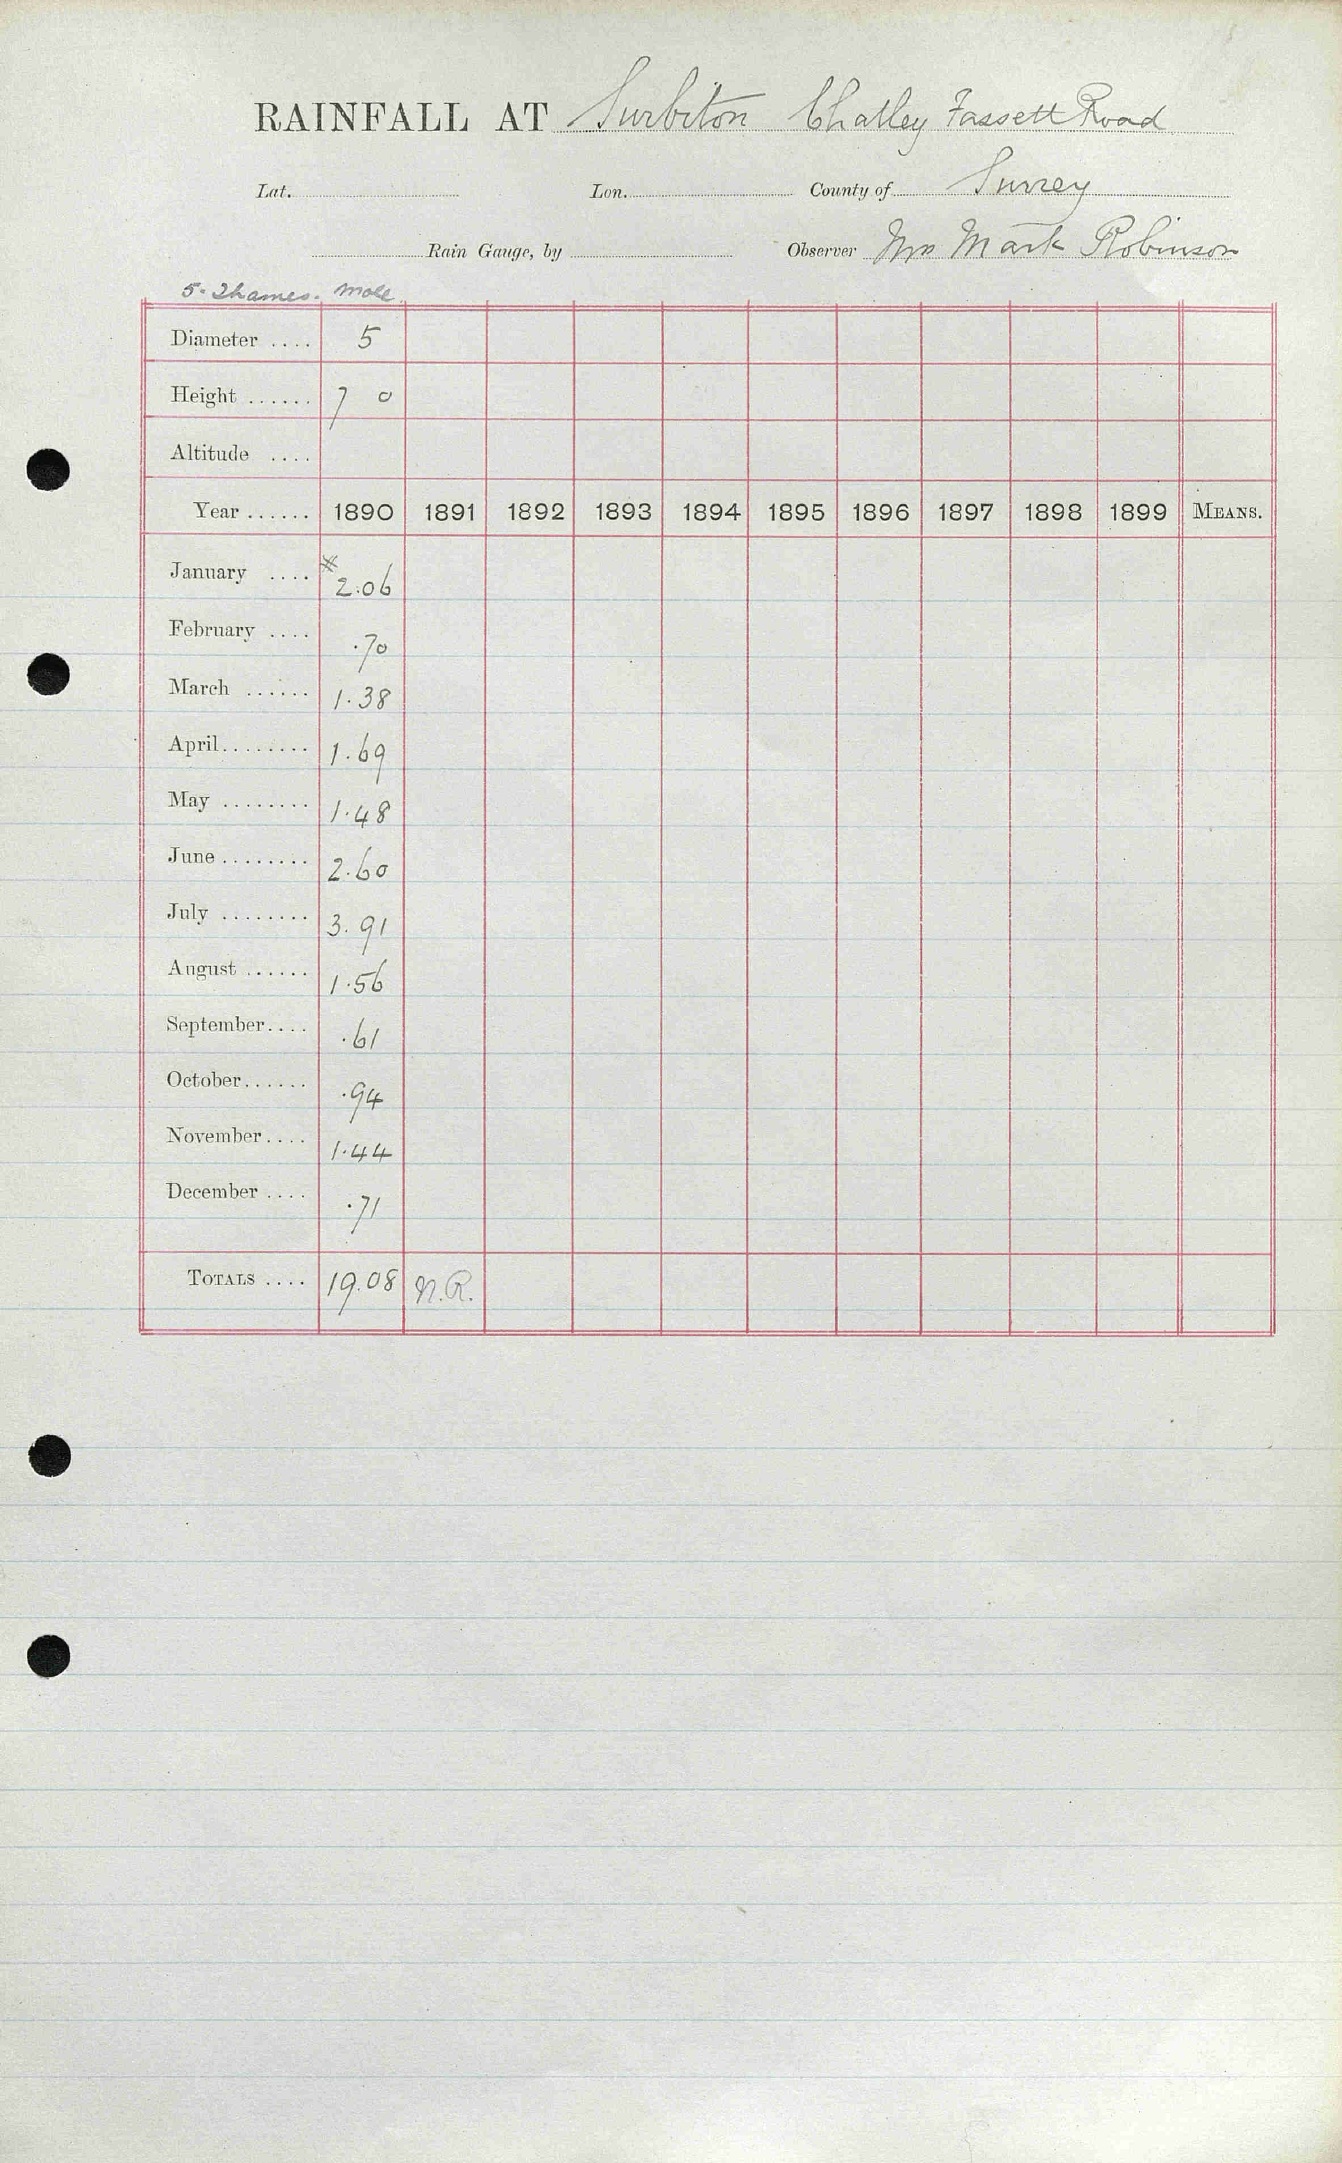 RAINFALL AT Surbiton Chatley Fassett Road
Lat. Lon. County of Surrey
Rain Gauge, by Observer Mrs Mark Robinson
5. Thames. Mole
Diameter .... 5
Height ...... 7 0
Altitude ....
Year ...... 1890 1891 1892 1893 1894 1895 1896 1897 1898 1899 MEANS.
January .... * 2.06
February .... .70
March ...... 1.38
April........ 1.69
May ........ 1.48
June ........ 2.60
July ........ 3.91
August ...... 1.56
September.... .61
October...... .94
November.... 1.44
December .... .71
TOTALS .... 19.08 N.R.